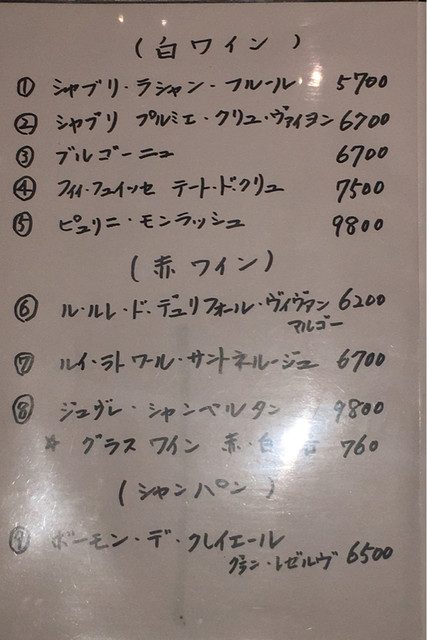 (白ワイン)
① シャブリ・ラシャン・フルール 5700
② シャブリ プルミエ・クリュ・ヴァイヨン 6700
③ ブルゴーニュ 6700
④ フィイ・フュイッセ テート・ド・クリュ 7500
⑤ ピュリニ・モンラッシュ 9800
(赤ワイン)
⑥ ル・ルレ・ド・デュリフォール・ヴィヴァン 6200
マルゴー
⑦ ルイ・ラトワール・サントネルージュ 6700
⑧ ジュヴレ・シャンベルタン 9800
* グラスワイン 赤・白 760
(シャンパン)
⑨ ボーモン・デ・クレイエール
グラン・レゼルヴ 6500